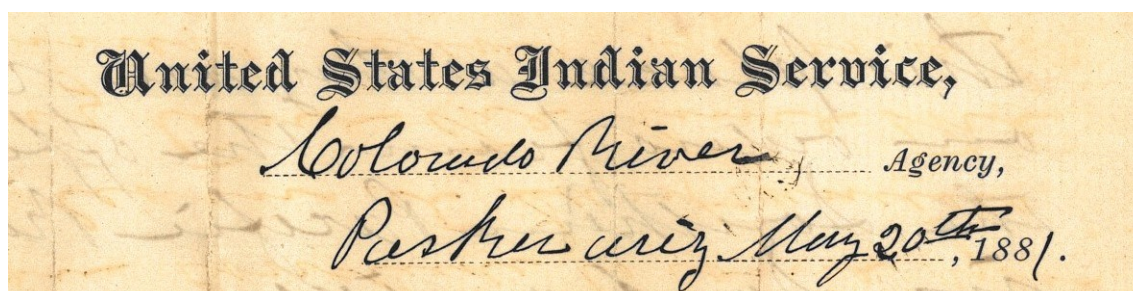 United States Indian Service,
Colorado River Agency,
Parker Ariz May 20th, 1881.